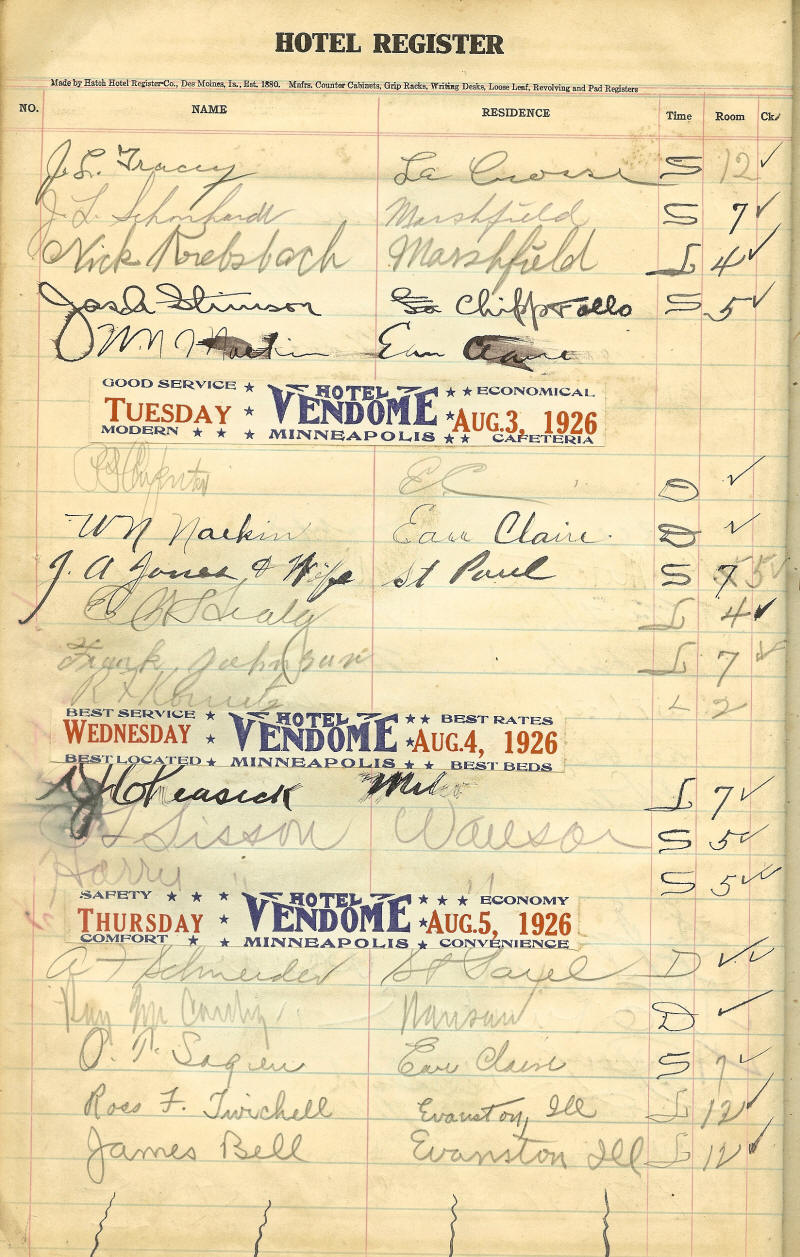 HOTEL REGISTER
Made by Hatch Hotel Register Co., Des Moines, Ia., Est. 1880. Mnfrs. Counter Cabinets, Grip Racks, Writing Desks, Loose Leaf, Revolving and Pad Registers
NO. NAME RESIDENCE Time Room Ck.
J. L. Tracey La Crosse S 12 ✓
J. L. Schonhardt Marshfield S 7 ✓
Nick Krebsbach Marshfield L 4 ✓
Stimson Chipp Falls S 5 ✓
W N Naekin Eau Claire
GOOD SERVICE ★ HOTEL ★ ★ ECONOMICAL
TUESDAY ★ VENDOME ★ AUG. 3, 1926
MODERN ★ ★ ★ MINNEAPOLIS ★ ★ CAFETERIA
E C D ✓
W N Naekin Eau Claire D ✓
J. A Jones & Wife St Paul S 7 5 ✓
L 4 ✓
Frank Johnson L 7 ✓
L 2
BEST SERVICE ★ HOTEL ★ ★ BEST RATES
WEDNESDAY ★ VENDOME ★ AUG. 4, 1926
BEST LOCATED ★ MINNEAPOLIS ★ ★ BEST BEDS
Keasick L 7 ✓
Sisson Wausau S 5 ✓
Harry " " S 5 ✓✓
SAFETY ★ ★ ★ HOTEL ★ ★ ★ ECONOMY
THURSDAY ★ VENDOME ★ AUG. 5, 1926
COMFORT ★ ★ MINNEAPOLIS ★ CONVENIENCE
A F Schneider St Paul D ✓✓
Ray Mc Carthy D ✓
Eau Claire S 7 ✓
Ross F. Twichell Evanston, Ill L 12 ✓
James Bell Evanston Ill L 12 ✓